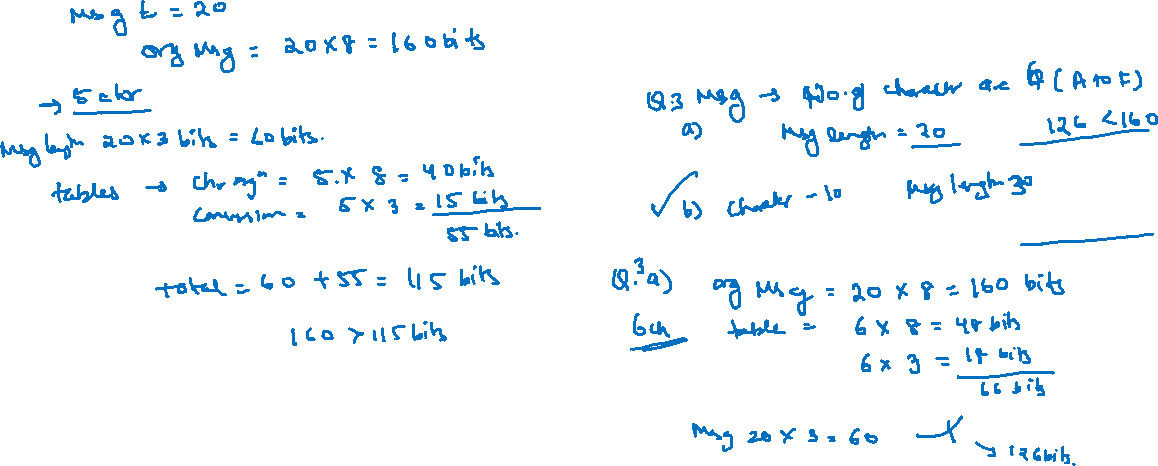 Msg t = 20
org Msg = 20 x 8 = 160 bits
→ 5 char
Msg length 20 x 3 bits = 60 bits.
tables → Chr = 5 x 8 = 40 bits
= 5 x 3 = 15 bits
55 bits.
total = 60 + 55 = 115 bits
160 > 115 bits
Q.3 Msg → No. of character are 6 (A to F)
a) Msg length = 20 126 < 160
b) character - 10 Msg length 30
Q.3 a) org Msg = 20 x 8 = 160 bits
6 ch table = 6 x 8 = 48 bits
6 x 3 = 18 bits
66 bits
Msg 20 x 3 = 60
→ 126 bits.